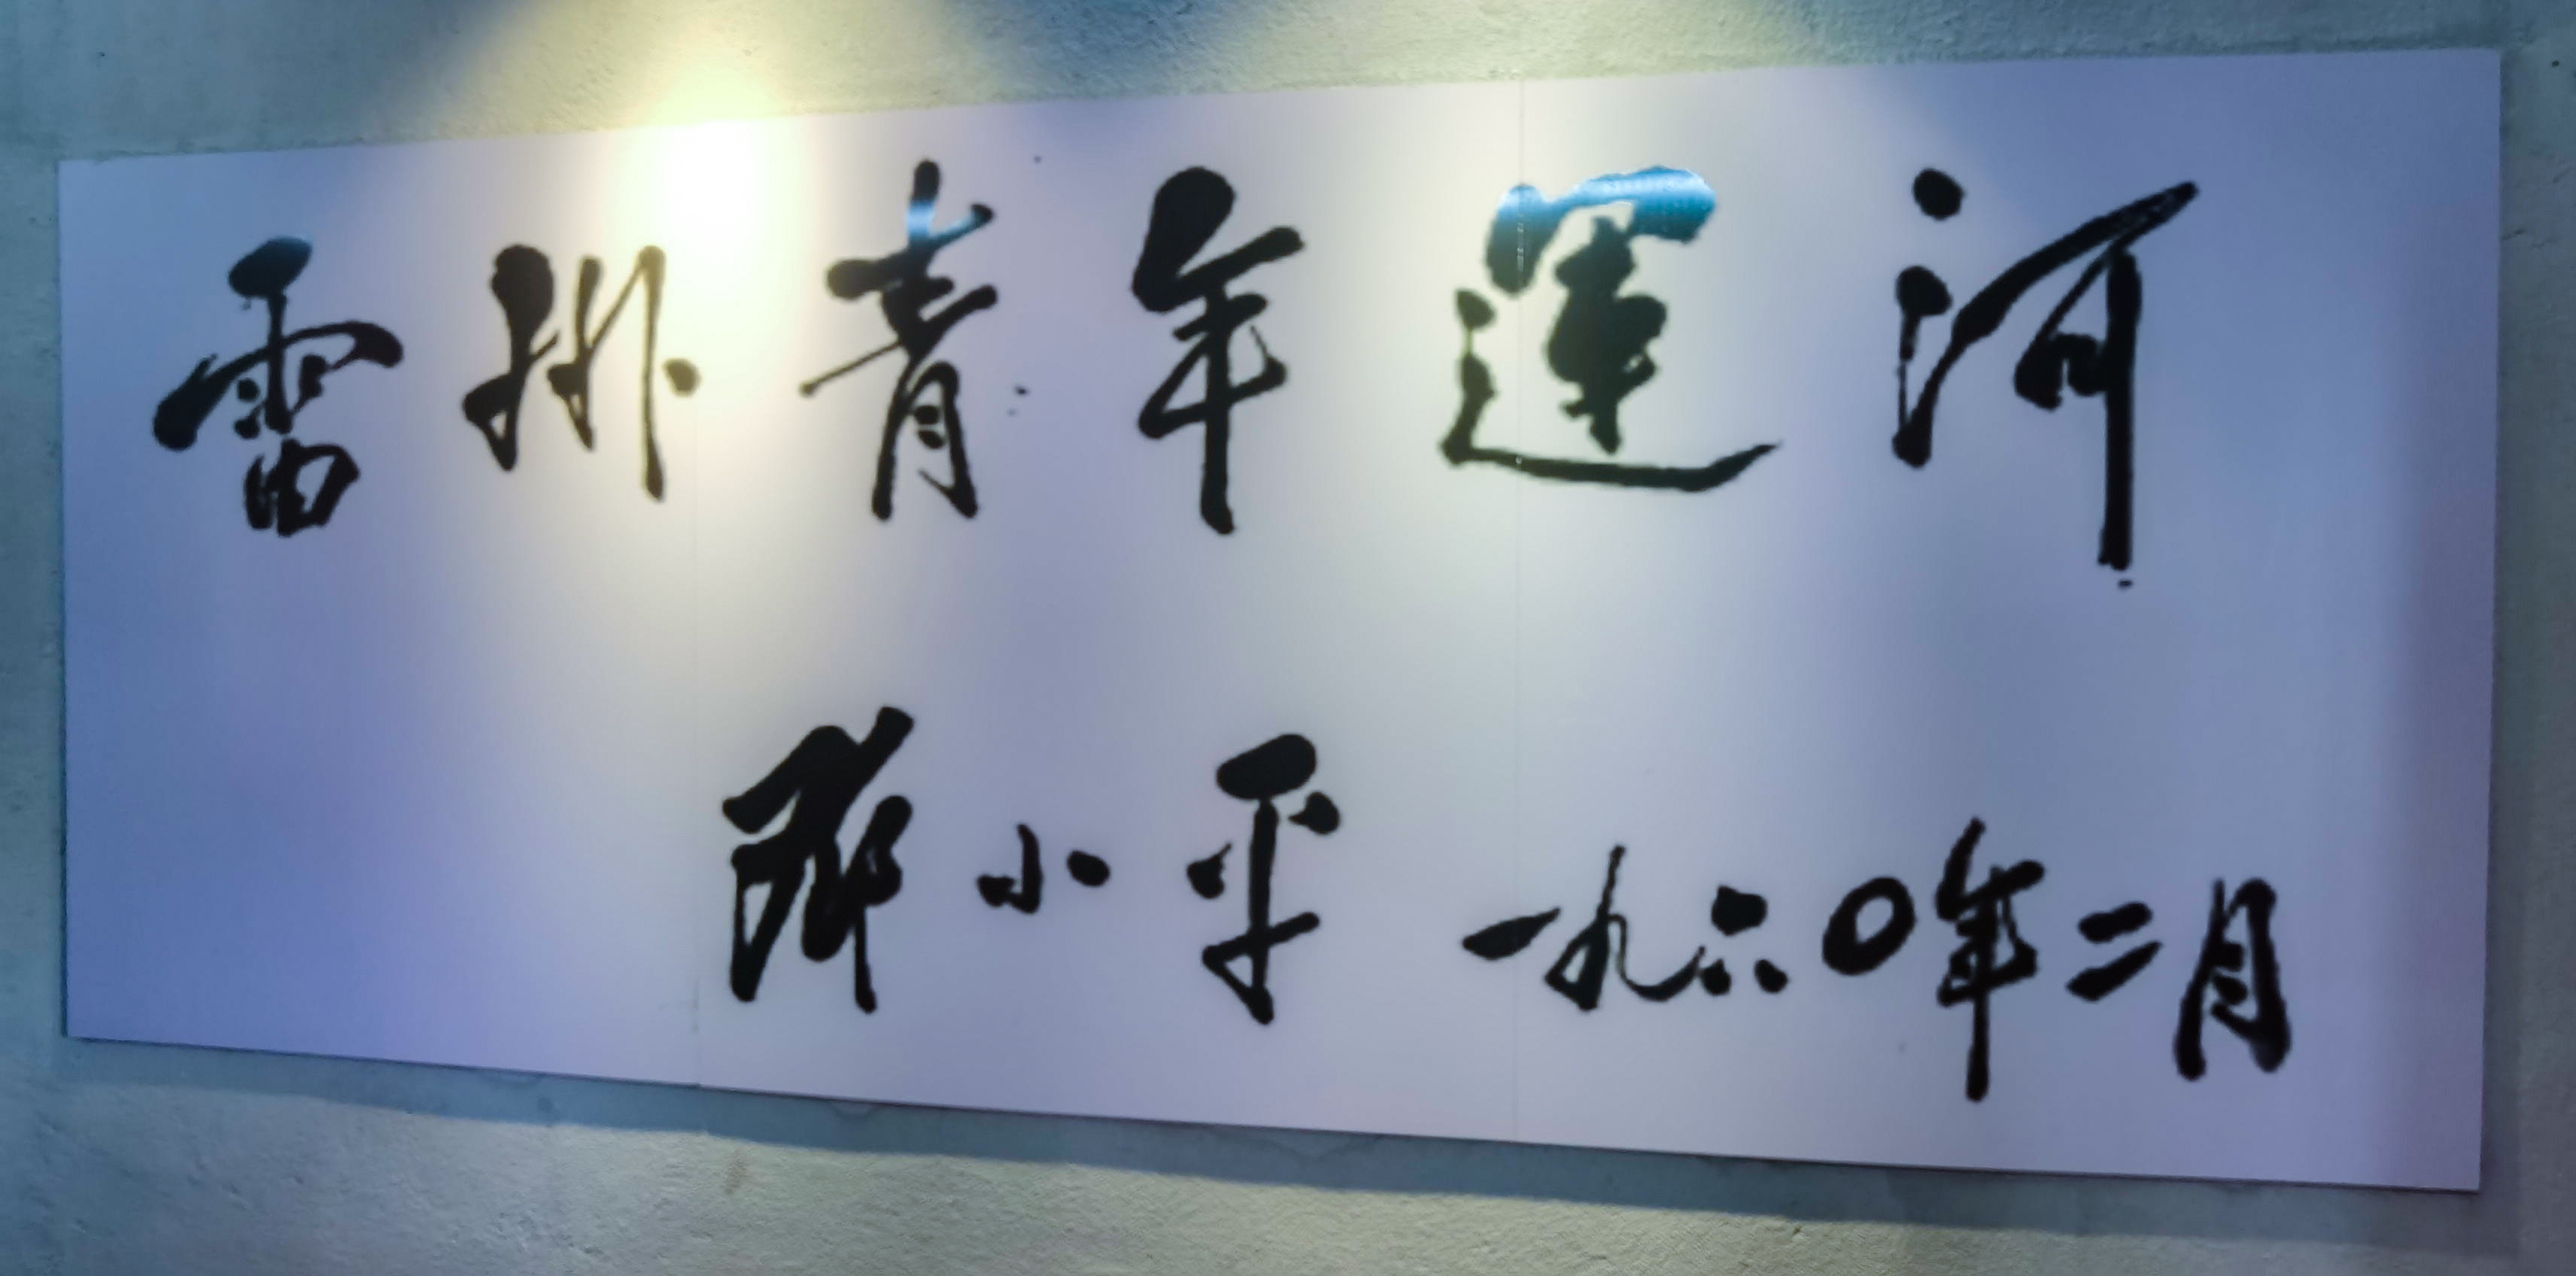 雷州青年運河
鄧小平 一九六〇年二月